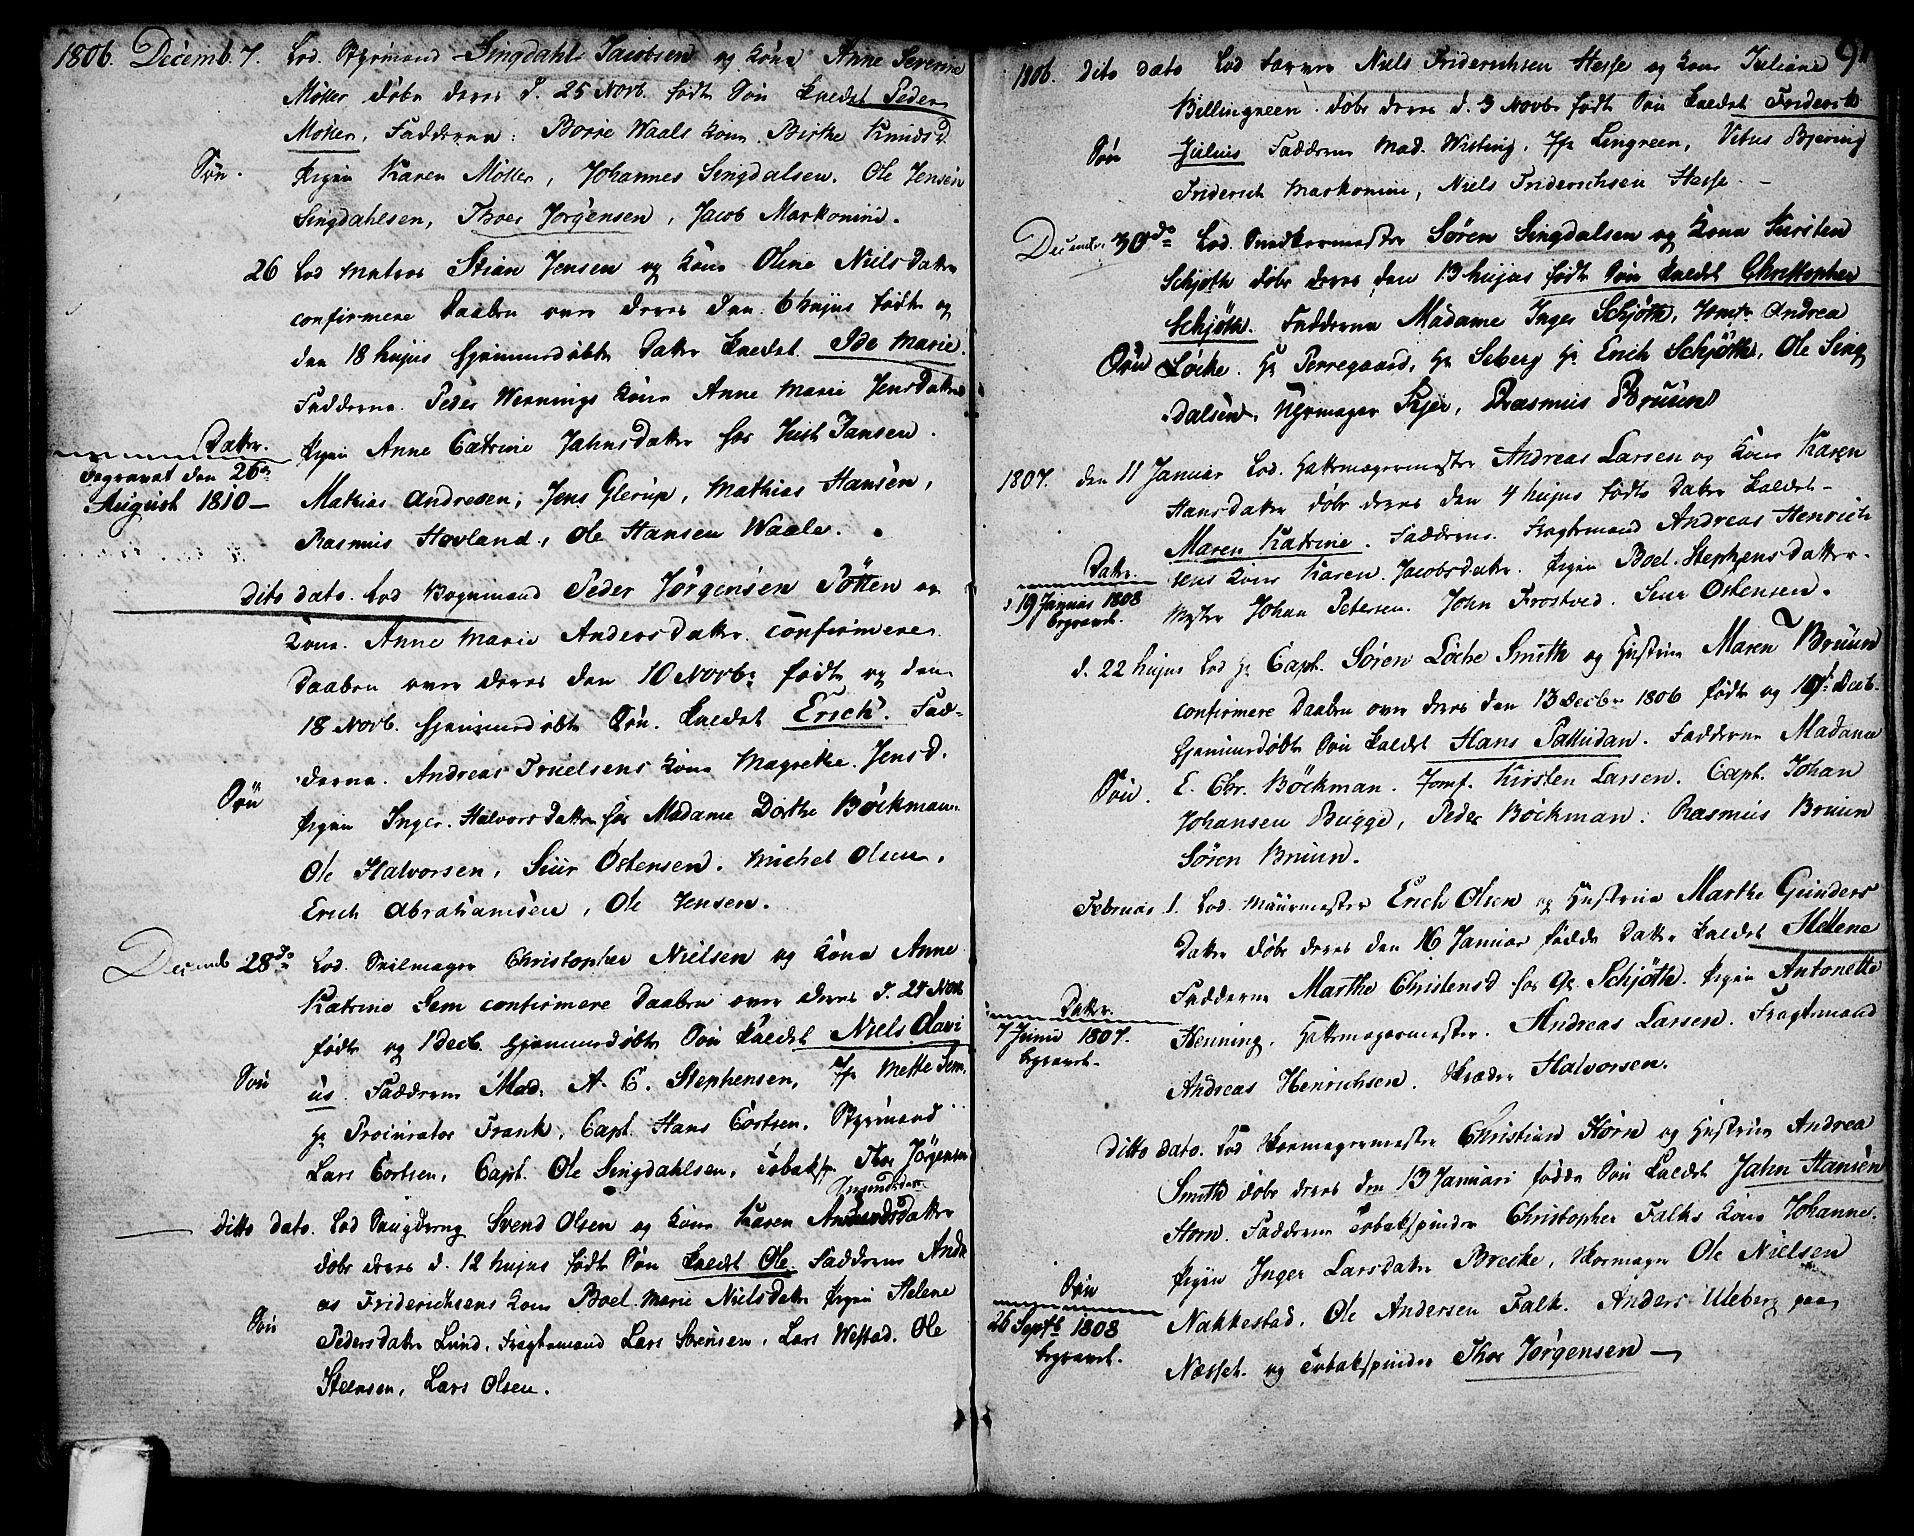 1806. Decemb. 7. Lod Styrmand Singdahl Jacobsen og Kone Anne Severine
Møller døbe deres d. 25 Novb. født Søn kaldet Peder
Møller. Fadderne: Børre Waals Kone. Birthe Knudsd.
Søn. Pigen Karen Møller, Johannes Singdalsen. Ole Jensen
Singdahlsen, Thoer Jørgensen, Jacob Markonini.
26 Lod Matros Stian Jensen og Kone Oline Niels Datter
confirmere Daaben over deres den 6 hujus født og
den 18 hujus hjemmedøbte Datter kaldet. Ide Marie.
Fadderne. Peder Wennings Kone Anne Marie Jensdatter
Datter. Pigen Anne Catrine Jahnsdatter hos Just Jansen.
begravet den 26de
August 1810 — Mathias Andresen, Jens Glerup, Mathias Hansen,
Rasmus Hovland, Ole Hansen Waale.
dito dato. Lod Bognmand Peder Jørgensen Pötten og
Kone. Anne Marie Andersdatter. confirmere
Daaben over deres den 10 Novbr født og den
18 Novb. hjemmedøbte Søn. kaldet Erich. Fad-
derne. Andreas Truelsens Kone Magrethe. Jensd.
Søn Pigen Inger. Halvorsdatter hos Madame Dorthe Böckman
Ole Halvorsen, Siur Østensen. Michel Olsen,
Erich Abrahamsen, Ole Jensen.
Decemb 28de Lod. Seilmager Christopher Nielsen og Kone Anne
Katrine Sem confirmere Daaben over deres d. 24 Nov
født og 1 Decb. hjemmedøbte Søn kaldet Niels Olavi
Søn us. Fadderne Mad. A. C. Stephensen, Jfr Mette Sem.
Hr Procurator Frank, Capt. Hans Cortsen. Styrmand
Lars Cortsen, Capt. Ole Singdahlsen, Tobaksp. Thor Jörgensen
Amundsdatter
ditto dato. Lod Svend Olsen og Kone Karen Amundsdatter
døbe deres d. 12 hujus født Søn kaldet Ole. Fadderne Andre
as Friderichsens Kone Boel Marie Nielsdatter Pigen Helene
Søn Pedersdatter Lund. Fragtemand Lars Sørensen, Lars Westad. Ole
Steensen, Lars Olsen.
91
1806. dito dato Lod Farver Niels Friderichsen Hesse og Kone Juliane
Billingreen døbe deres d. 3 Novbr født Søn kaldet Friderik
Søn Julius Fadderne Mad. Wisting, Jfr Lingreen, Vitus Bjering
Friderich Markonini, Niels Friderichsen Hesse. —
Decembr. 30de Lod. Snedkermester Søren Singdalsen og Kone Kirsten
Schjøth døbe deres den 13 hujus født Søn kaldet Christopher
Schjøth. Fadderne Madame Inger Schjøth, Jomfr Andrea
Søn Løcke. Hr Perregaard, Hr Seberg Hr Erich Schjøth, Ole Sing
dalsen, Uhrmager Kjer, Rasmus Bruun
1807. den 11 Januar Lod. Hattemagermester Andreas Larsen og Kone Karen
Hansdatter døbe deres den 4 hujus født Datter kaldet —
Maren Katrine. Fadderne. Fragtemand Andreas Henrich
Datter. sens Kone Karen. Jacobsdatter. Pigen Boel. Stephensdatter.
d. 19 Januar 1808
begravet. Mester Johan Petersen. John Frostved. Siur Østensen.
d. 22 hujus Lod Hr Capt. Søren Løche Smith og Hustrue Maren Bruun
confirmere Daaben over deres den 13 Decbr 1806 født og 19d Decb.
hjemmedøbte Søn kaldet Hans Palludan. Fadderne Madame
Søn. E. Chr. Böckman. Jomf. Kirsten Larsen. Capt. Johan
Johansen Bugge, Peder Böckman. Rasmus Bruun
Søren Bruun.
Februar 1. Lod. Muurmester Erich Olsen og Hustrue Marthe Gunders
Datter døbe deres den 16 Januar fødde Datter kaldet Helene
Fadderne Marthe Christensd hos Hr. Schjøth. Pigen Antonette
Datter.
7 Junii 1807.
begravet. Henning. Hattemagermester. Andreas Larsen. Fragtemand
Andreas Henrichsen. Skræder Halvorsen.
ditto dato. Lod Skoemagermester Christian Horn og Hustrue Andrea
Smith døbe deres den 13 Januari fødde Søn kaldet Jahn Hansen
Horn. Fadderne Tobakspinder Christopher Falks Kone Johanne.
Søn Pigen Inger Larsdatter Brecke, Skomager Ole Nielsen
26 Septb 1808
begravet. Nakkestad, Ole Andersen Falk. Anders Uleberg paa
Næsset. og Tobakspinder Thor Jørgensen —